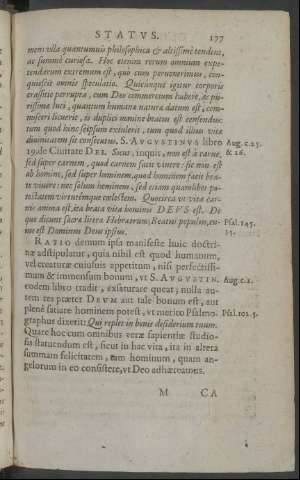 STATVS. 177
mens illa quantumuis philosophica & altissimè tendens,
ac summè curiosa. Hoc etenim rerum omnium expe-
tendarum extremum est, quo cum peruenerimus, con-
quiescit omnis speculatio. Quicunque igitur corporis
crassitie perrupta, cum Deo commercium habere, ac pu-
rissimæ luci, quantum humana natura datum est, com-
misceri licuerit, is dupliei nomine beatus est censendus:
tum quòd hinc seipsum extulerit, tum quòd illuic vitæ
diuinitatem sit consecutus. S. AVGVSTINVS libro Aug. c.25.
19. de Ciuitate DEI. Sicut, inquit, non est à carne, & 26.
sed super carnem, quod carnem facit viuere: sic non est
ab homine, sed super hominem, quod hominem facit beatè
viuere: nec solum hominem, sed etiam quamlibet po-
testatem virtutémque cælestem. Quocirca vt vita car-
nis anima est, ita beata vita hominis DEVS est. De
quo dicunt sacræ literæ Hebræorum; Beatus populus, cu- Psal. 143.
ius est Dominus Deus ipsius. 15.
RATIO demum ipsa manifestè huic doctri-
næ adstipulatur, quia nihil est quod humanum,
vel creaturæ cuiusuis appetitum, nisi perfectissi-
mum & immensum bonum, vt S. AVGVSTIN. Aug. c. 1.
eodem libro tradit, exsaturare queat; nulla au-
tem res præter DEVM aut tale bonum est, aut
plenè satiare hominem potest, vt meritò Psalmo- Psal. 102. 5.
graphus dixerit: Qui replet in bonis desiderium tuum.
Quare hoc cum omnibus veræ sapientiæ studio-
sis statuendum est, sicut in hac vita, ita in altera
summam felicitatem, tam hominum, quam an-
gelorum in eo consistere, vt Deo adhæreamus.
M CA